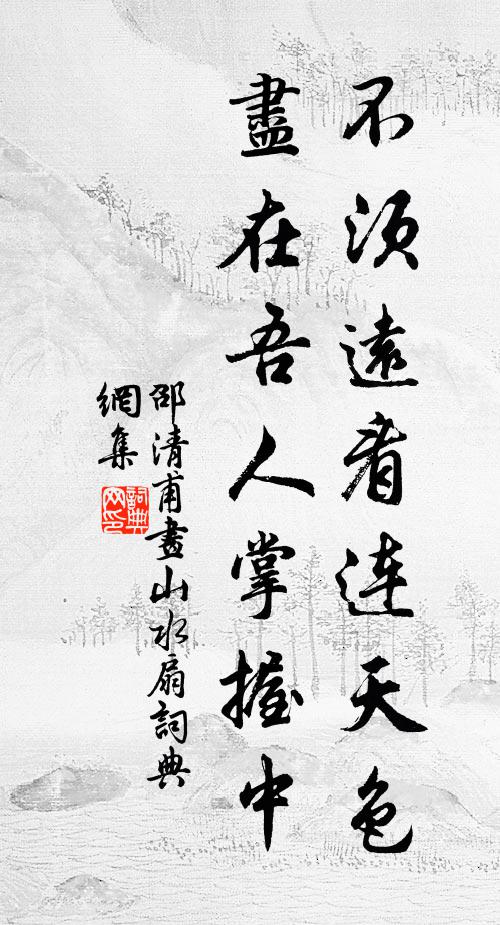 不須遠看連天色
盡在吾人掌握中
邵清甫畫山水扇詞典
網集
詞典网印